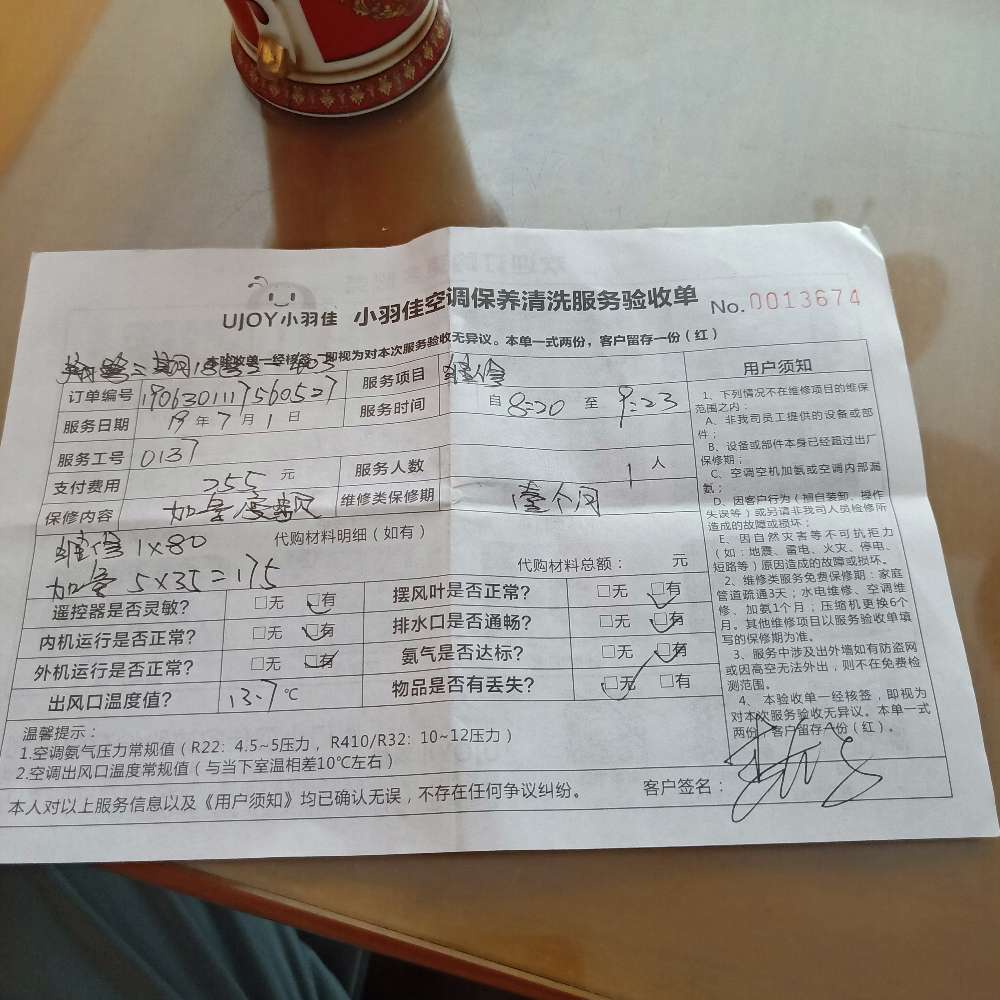 UJOY小羽佳 小羽佳空调保养清洗服务验收单 No.0013674
本验收单一经核签,即视为对本次服务验收无异议。本单一式两份,客户留存一份(红)
订单编号 1906301117560527 服务项目 维修
服务日期 19年7月1日 服务时间 自8:20至9:23
服务工号 0137
支付费用 255元 服务人数 1人
保修内容 加氨 维修类保修期 壹个月
维修1×80 代购材料明细(如有)
加氨5×35=175 代购材料总额: 元
遥控器是否灵敏? □无 □有 摆风叶是否正常? □无 □有
内机运行是否正常? □无 □有 排水口是否通畅? □无 □有
外机运行是否正常? □无 □有 氨气是否达标? □无 □有
出风口温度值? 13.7℃ 物品是否有丢失? □无 □有
温馨提示:
1.空调氨气压力常规值(R22:4.5~5压力,R410/R32:10~12压力)
2.空调出风口温度常规值(与当下室温相差10℃左右)
本人对以上服务信息以及《用户须知》均已确认无误,不存在任何争议纠纷。 客户签名:
用户须知
1、下列情况不在维修项目的维保
范围之内:
A、非我司员工提供的设备或部
件;
B、设备或部件本身已经超过出厂
保修期;
C、空调空机加氨或空调内部漏
氨;
D、因客户行为(擅自装卸、操作
失误等)或另请非我司人员检修所
造成的故障或损坏;
E、因自然灾害等不可抗拒力
(如:地震、雷电、火灾、停电、
短路等)原因造成的故障或损坏。
2、维修类服务免费保修期:家庭
管道疏通3天;水电维修、空调维
修、加氨1个月;压缩机更换6个
月。其他维修项目以服务验收单填
写的保修期为准。
3、服务中涉及出外墙如有防盗网
或因高空无法外出,则不在免费检
测范围。
4、本验收单一经核签,即视为
对本次服务验收无异议。本单一式
两份,客户留存一份(红)。